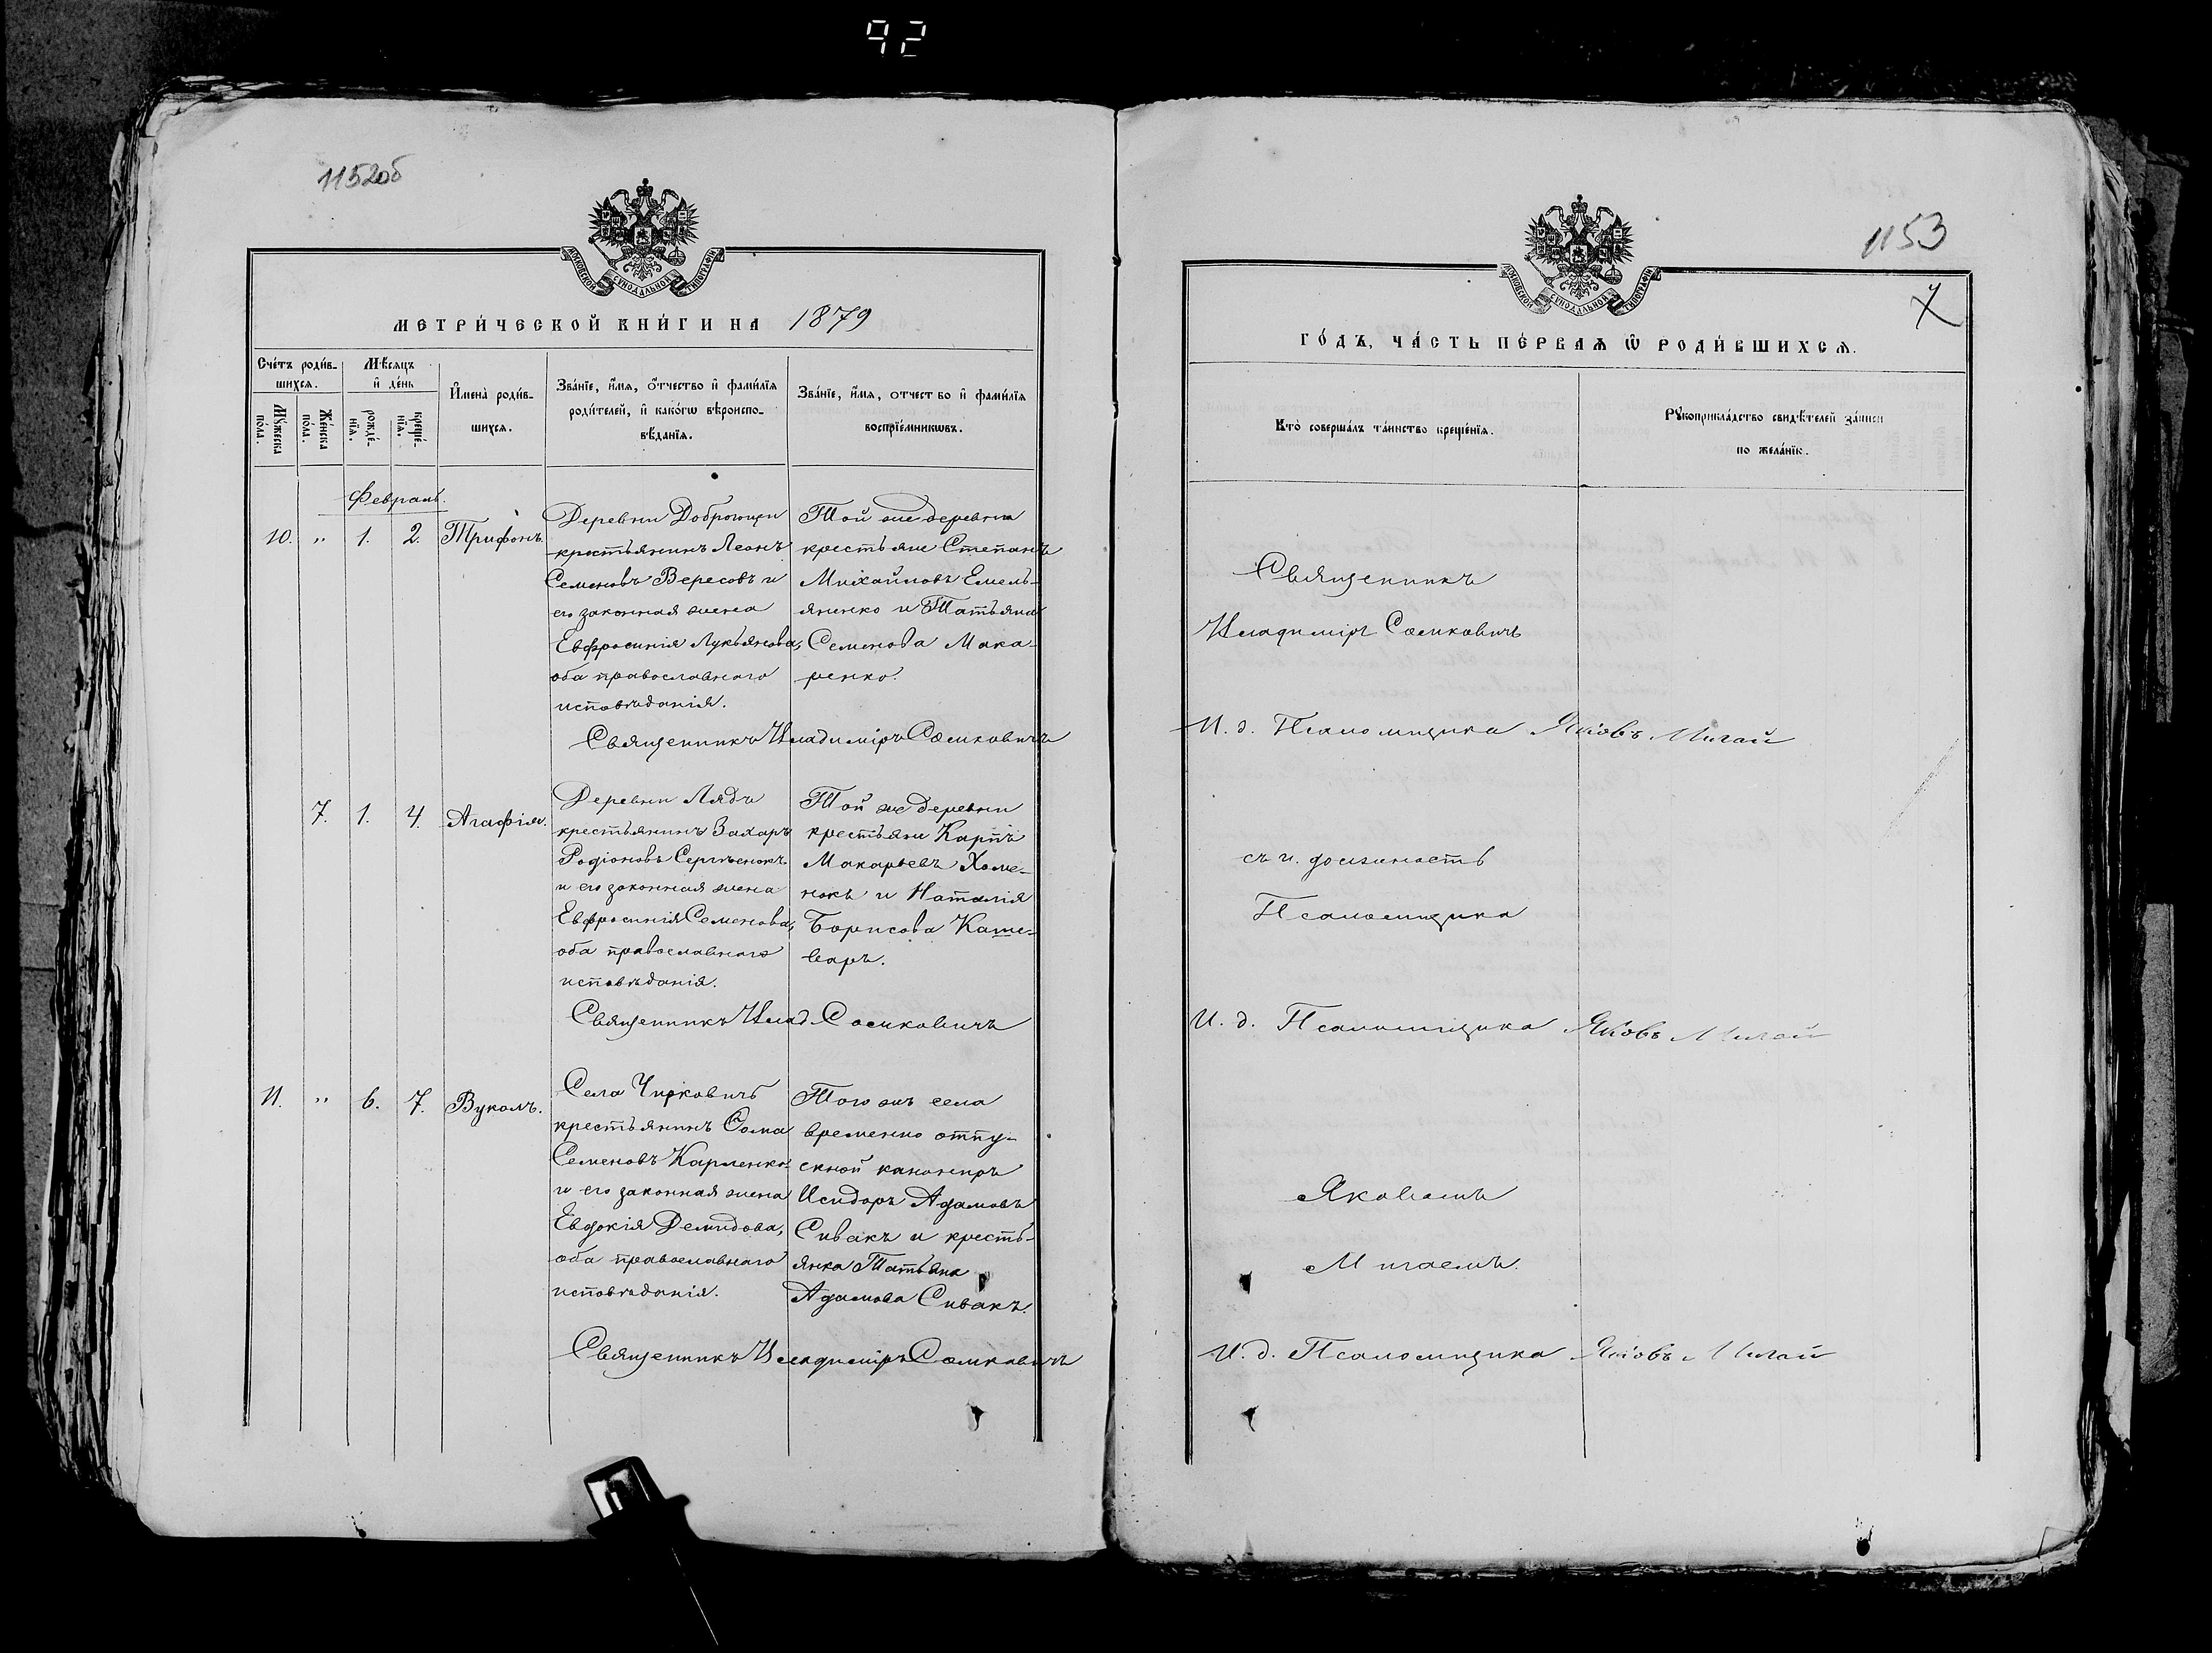 92
1152об
МОСКОВСКОЙ СѴНОДАЛЬНОЙ ТИПОГРАФІИ
МЕТРИ́ЧЕСКОЙ КНИ́ГИ НА 1879
Сче́тъ роди́в-
шихся.
Мѣ́сяцъ
и҆ де́нь
Мꙋ́жеска
по́ла.
Же́нска
по́ла.
рожде́-
нїѧ.
креще́-
нїѧ.
И҆мена̀ роди́в-
шихся.
Зва́нїе, и҆́мѧ, ѻ҆́тчество и҆ фами́лїѧ
роди́телей, и҆ како́гѡ вѣроиспо-
вѣ́данїѧ.
Зва́нїе, и҆́мѧ, отчество и҆ фами́лїѧ
воспрїе́мникѡвъ.
Февраль.
10. " 1. 2. Трифонъ.
Деревни Доброгощи
крестьянинъ Леонъ
Семеновъ Вересовъ и
его законная жена
Евфросинія Лукьянова,
оба православнаго
исповѣданія.
Той же деревни
крестьяне Степанъ
Михайловъ Емель-
яненко и Татьяна
Семенова Мака-
ренко.
Священникъ Владиміръ Сомковичъ
7. 1. 4. Агафія.
Деревни Лядъ
крестьянинъ Захаръ
Родіоновъ Сергѣенокъ
и его законная жена
Евфросинія Семенова,
оба православнаго
исповѣданія.
Той же деревни
крестьяне Карпъ
Макарьевъ Хоме-
нокъ и Наталія
Борисова Каше-
варъ.
Священникъ Влад. Сомковичъ
11. " 6. 7. Вуколъ.
Села Чирковичъ
крестьянинъ Ѳома
Семеновъ Карленко
и его законная жена
Евдокія Демидова,
оба православнаго
исповѣданія.
Того же села
временно отпу-
скной канониръ
Исидоръ Адамовъ
Сивакъ и кресть-
янка Татьяна
Адамова Сивакъ.
Священникъ Владиміръ Сомковичъ
1153
МОСКОВСКОЙ СѴНОДАЛЬНОЙ ТИПОГРАФІИ
ГО́ДЪ, ЧА́СТЬ ПЕ́РВАѦ Ѡ҆ РОДИ́ВШИХСѦ.
Кто̀ соверша́лъ та́инство креще́нїѧ.
Рꙋкоприкла́дство свидѣ́телей за́писи
по жела́нїю.
Священникъ
Владиміръ Сомковичъ
И. д. Псаломщика Яковъ Мигай
съ и. должность
Псаломщика
И. д. Псаломщика Яковъ Мигай
Яковомъ
Мигаемъ.
И. д. Псаломщика Яковъ Мигай